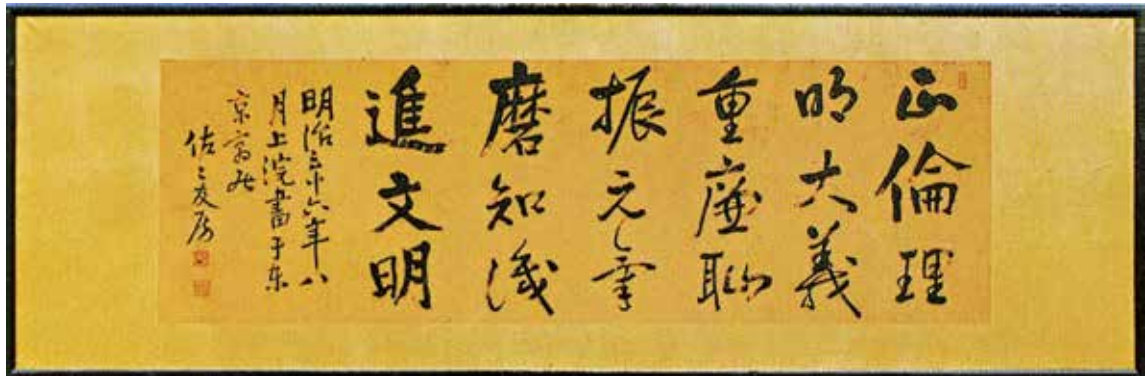 正倫理
明大義
重廉恥
振元氣
磨知識
進文明
明治三十六年八
月上浣書于東
京寓居
佐々友房